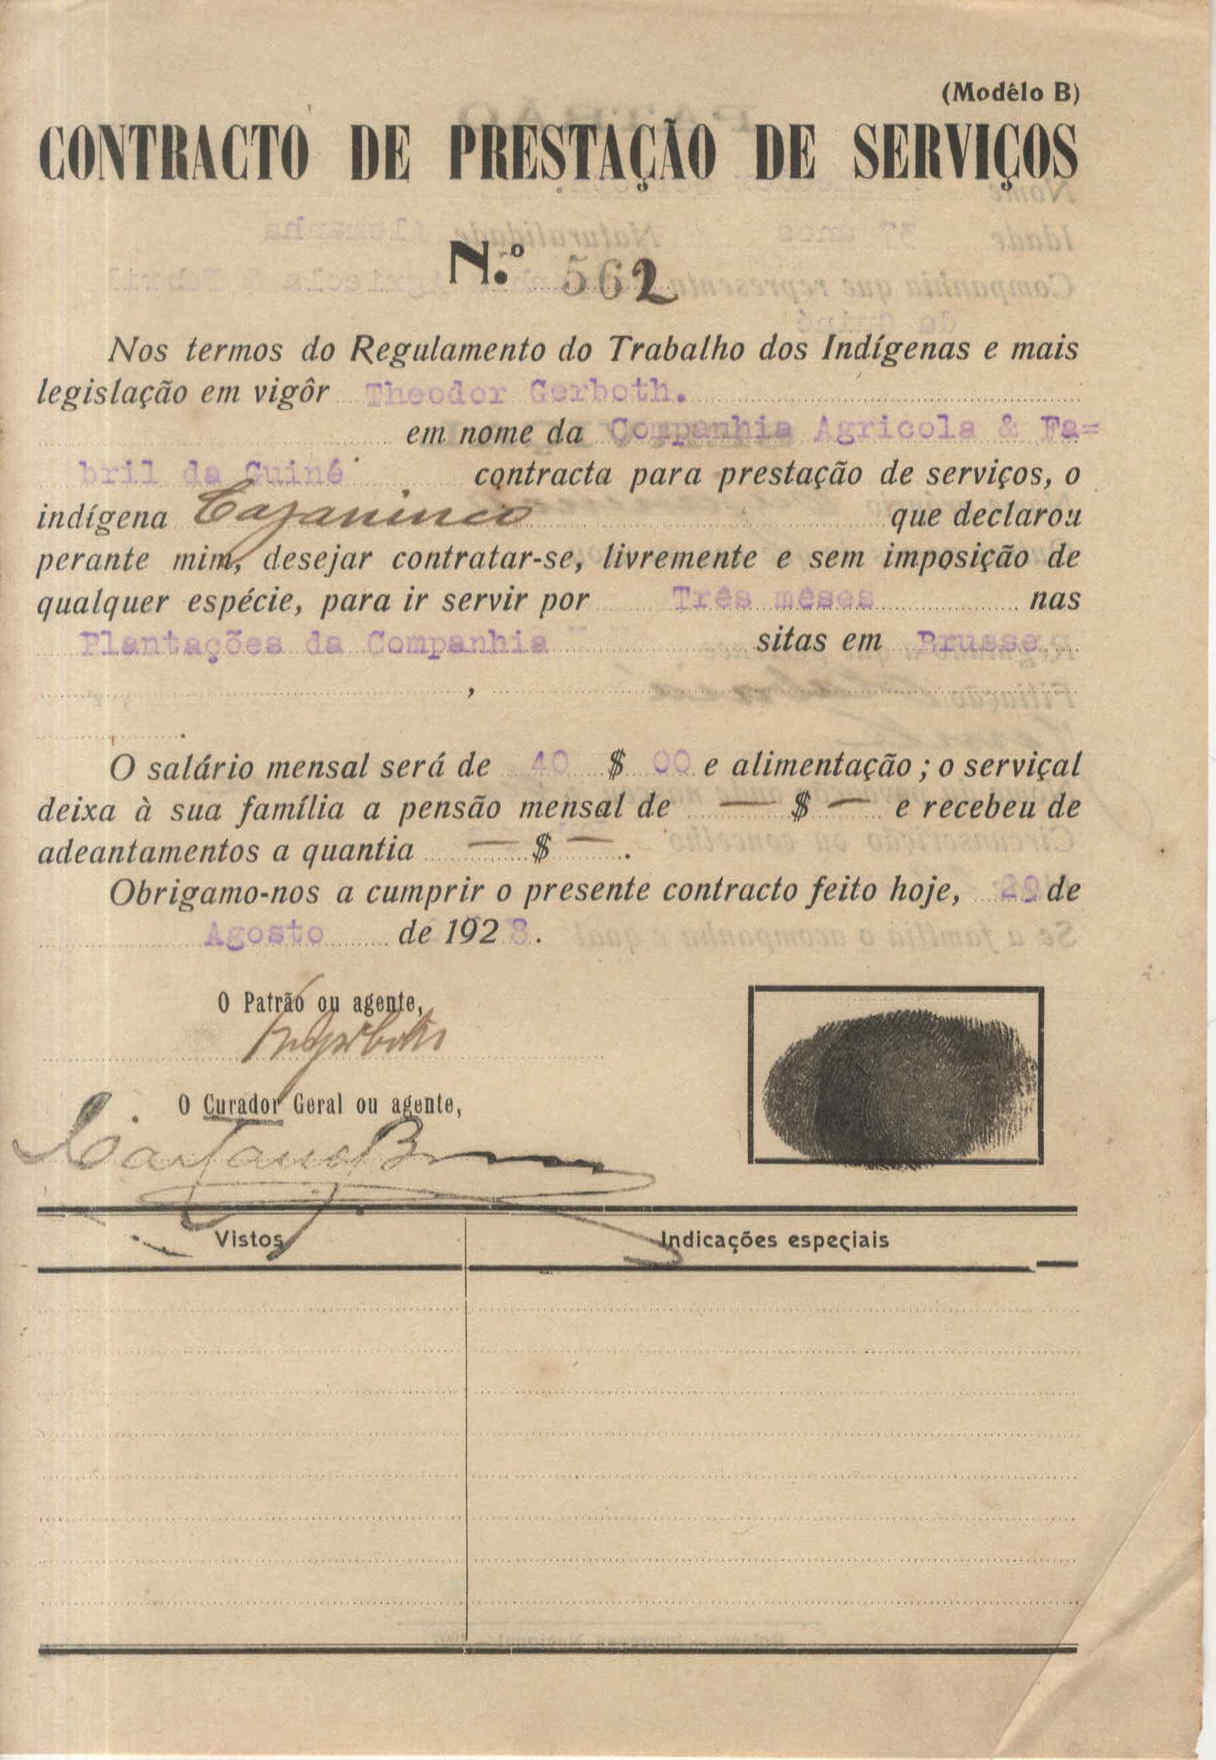 (Modêlo B)
CONTRACTO DE PRESTAÇÃO DE SERVIÇOS
N.º 562
Nos termos do Regulamento do Trabalho dos Indígenas e mais
legislação em vigôr Theodor Gerboth.
em nome da Companhia Agricola & Fa=
bril da Guiné contracta para prestação de serviços, o
indígena que declarou
perante mim, desejar contratar-se, livremente e sem imposição de
qualquer espécie, para ir servir por Três mêses nas
Plantações da Companhia sitas em Brusse
,
O salário mensal será de 40 $ 00 e alimentação ; o serviçal
deixa à sua família a pensão mensal de — $ — e recebeu de
adeantamentos a quantia — $ — .
Obrigamo-nos a cumprir o presente contracto feito hoje, 29 de
Agosto de 1928.
O Patrão ou agente,
O Curador Geral ou agente,
Vistos Indicações especiais